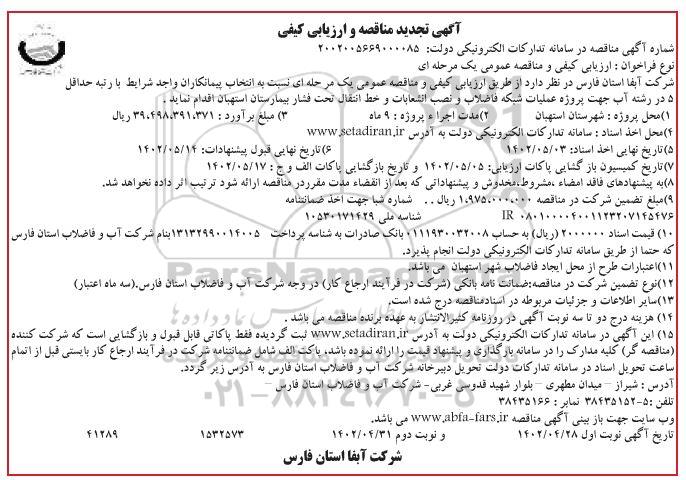 آگهی تجدید مناقصه و ارزیابی کیفی
شماره آگهی مناقصه در سامانه تدارکات الکترونیکی دولت: ۲۰۰۲۰۰۵۶۶۹۰۰۰۰۸۵
نوع فراخوان : ارزیابی کیفی و مناقصه عمومی یک مرحله ای
شرکت آبفا استان فارس در نظر دارد از طریق ارزیابی کیفی و مناقصه عمومی یک مر حله ای نسبت به انتخاب پیمانکاران واجد شرایط با رتبه حداقل
۵ در رشته آب جهت پروژه عملیات شبکه فاضلاب و نصب انشعابات و خط انتقال تحت فشار بیمارستان استهبان اقدام نماید .
۱)محل پروژه : شهرستان استهبان ۲)مدت اجراء پروژه : ۹ ماه ۳) مبلغ برآورد : ۳۹،۴۹۸،۳۹۱،۳۷۱ ریال
۴)محل اخذ اسناد : سامانه تدارکات الکترونیکی دولت به آدرس www.setadiran.ir
۵)تاریخ نهایی اخذ اسناد: ۱۴۰۲/۰۵/۰۳ ۶)تاریخ نهایی قبول پیشنهادات: ۱۴۰۲/۰۵/۱۴
۷)تاریخ کمیسیون باز گشایی پاکات ارزیابی: ۱۴۰۲/۰۵/۰۵ و تاریخ بازگشایی پاکات الف و ج : ۱۴۰۲/۰۵/۱۷
۸)به پیشنهادهای فاقد امضاء ،مشروط،مخدوش و پیشنهاداتی که بعد از انقضاء مدت مقرردر مناقصه ارائه شود ترتیب اثر داده نخواهد شد.
۹)مبلغ تضمین شرکت در مناقصه ۱،۹۷۵،۰۰۰،۰۰۰ ریال . . شماره شبا جهت اخذ ضمانتنامه
IR ۰۸۰۱۰۰۰۰۴۰۰۱۱۲۳۲۰۷۱۴۵۴۷۶ شناسه ملی ۱۰۵۳۰۱۷۱۴۲۹
۱۰) قیمت اسناد ۲۰۰۰۰۰۰ (ریال) به حساب ۰۱۱۱۹۳۰۰۳۲۰۰۸ بانک صادرات به شناسه پرداخت ۱۳۱۳۲۹۹۰۰۱۴۰۰۵بنام شرکت آب و فاضلاب استان فارس
که حتما از طریق سامانه تدارکات الکترونیکی دولت انجام پذیرد.
۱۱)اعتبارات طرح از محل ایجاد فاضلاب شهر استهبان می باشد.
۱۲)نوع تضمین شرکت در مناقصه:ضمانت نامه بانکی (شرکت در فرآیند ارجاع کار) در وجه شرکت آب و فاضلاب استان فارس.(سه ماه اعتبار)
۱۳)سایر اطلاعات و جزئیات مربوطه در اسنادمناقصه درج شده است.
۱۴) هزینه درج دو تا سه نوبت آگهی در روزنامه کثیرالانتشار به عهده برنده مناقصه می باشد .
۱۵) این آگهی در سامانه تدارکات الکترونیکی دولت به آدرس www.setadiran.ir ثبت گردیده فقط پاکاتی قابل قبول و بازگشایی است که شرکت کننده
(مناقصه گر) کلیه مدارک را در سامانه بارگذاری و پیشنهاد قیمت را ارائه نموده باشد، پاکت الف شامل ضمانتنامه شرکت در فرآیند ارجاع کار بایستی قبل از اتمام
ساعت تحویل اسناد در سامانه تدارکات دولت تحویل دبیرخانه شرکت آب و فاضلاب استان فارس به آدرس زیر گردد.
آدرس : شیراز – میدان مطهری – بلوار شهید قدوسی غربی- شرکت آب و فاضلاب استان فارس –
تلفن :۵-۳۸۴۳۵۱۵۲ نمابر : ۳۸۴۳۵۱۶۶
وب سایت جهت باز بینی آگهی مناقصه www.abfa-fars.ir می باشد.
تاریخ آگهی نوبت اول ۱۴۰۲/۰۴/۲۸ و نوبت دوم ۱۴۰۲/۰۴/۳۱ ۱۵۳۲۵۷۳ ۴۱۲۸۹
شرکت آبفا استان فارس